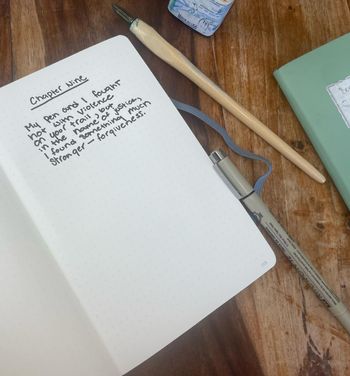 Chapter Nine
My pen and I fought
not with violence
on your trail, but
in the name of justice,
I found something much
stronger — forgiveness.